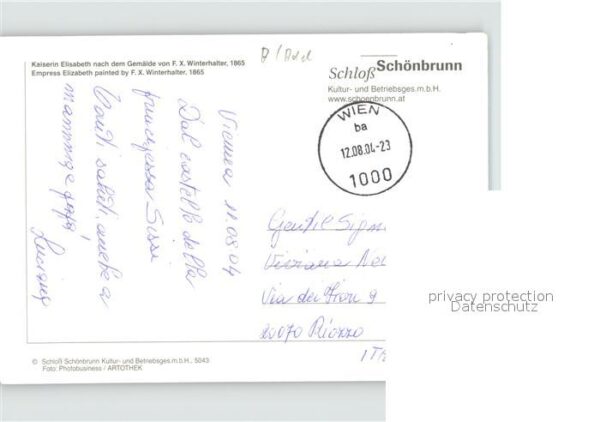 Kaiserin Elisabeth nach dem Gemälde von F. X. Winterhalter, 1865
Empress Elizabeth painted by F. X. Winterhalter, 1865
Vienna 11.08.04
Dal castello della
principessa Sissi
saluti anche a
mamma e papà,
Luciana
© Schloß Schönbrunn Kultur- und Betriebsges.m.b.H., 5043
Foto: Photobusiness / ARTOTHEK
Schloß Schönbrunn
Kultur- und Betriebsges.m.b.H.
www.schoenbrunn.at
WIEN
ba
12.08.04-23
1000
Gentil
Viviana
Via dei 9
20070 Riozzo
privacy protection
Datenschutz